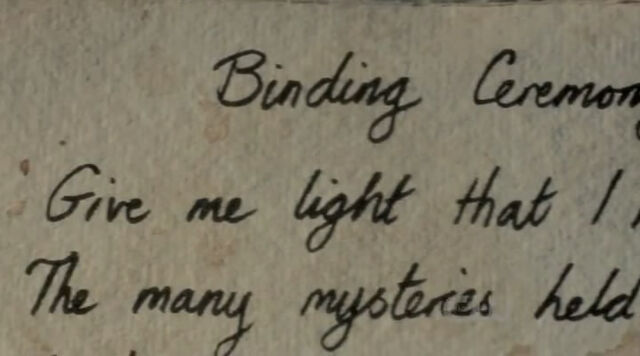 Binding
Give me light that I
The many mysteries held